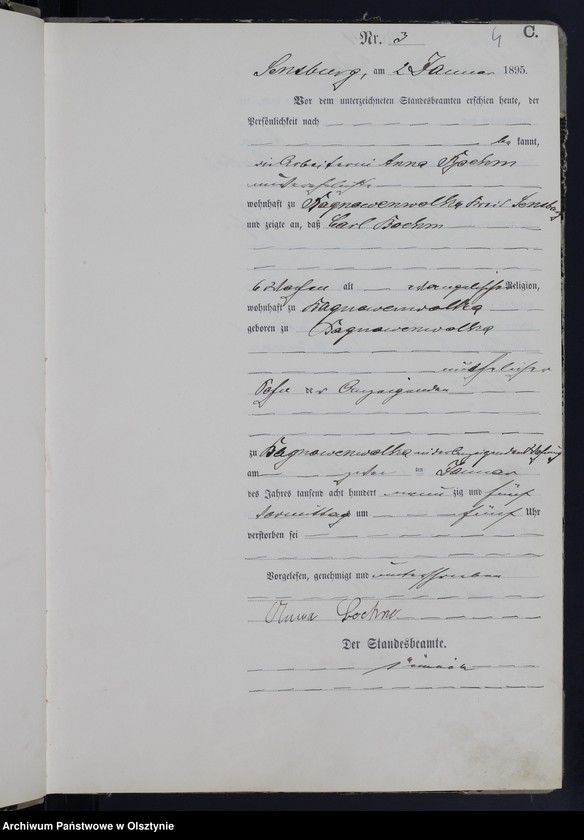 4 C.
Nr. 3
Sensburg, am 2 Januar 1895.
Vor dem unterzeichneten Standesbeamten erschien heute, der
Persönlichkeit nach
be kannt,
die Arbeiterin Anna Boehm
wohnhaft zu Bagnowenwolka Kreis Sensburg
und zeigte an, daß Carl Boehm
6 Wochen alt evangelischer Religion,
wohnhaft zu Bagnowenwolka
geboren zu Bagnowenwolka
unehelicher
Sohn der Anzeigenden
zu Bagnowenwolka in der Anzeigenden Wohnung
am im Januar
des Jahres tausend acht hundert neun zig und fünf
Vormittags um fünf Uhr
verstorben sei
Vorgelesen, genehmigt und unterschrieben
Anna Boehm
Der Standesbeamte.
Archiwum Państwowe w Olsztynie